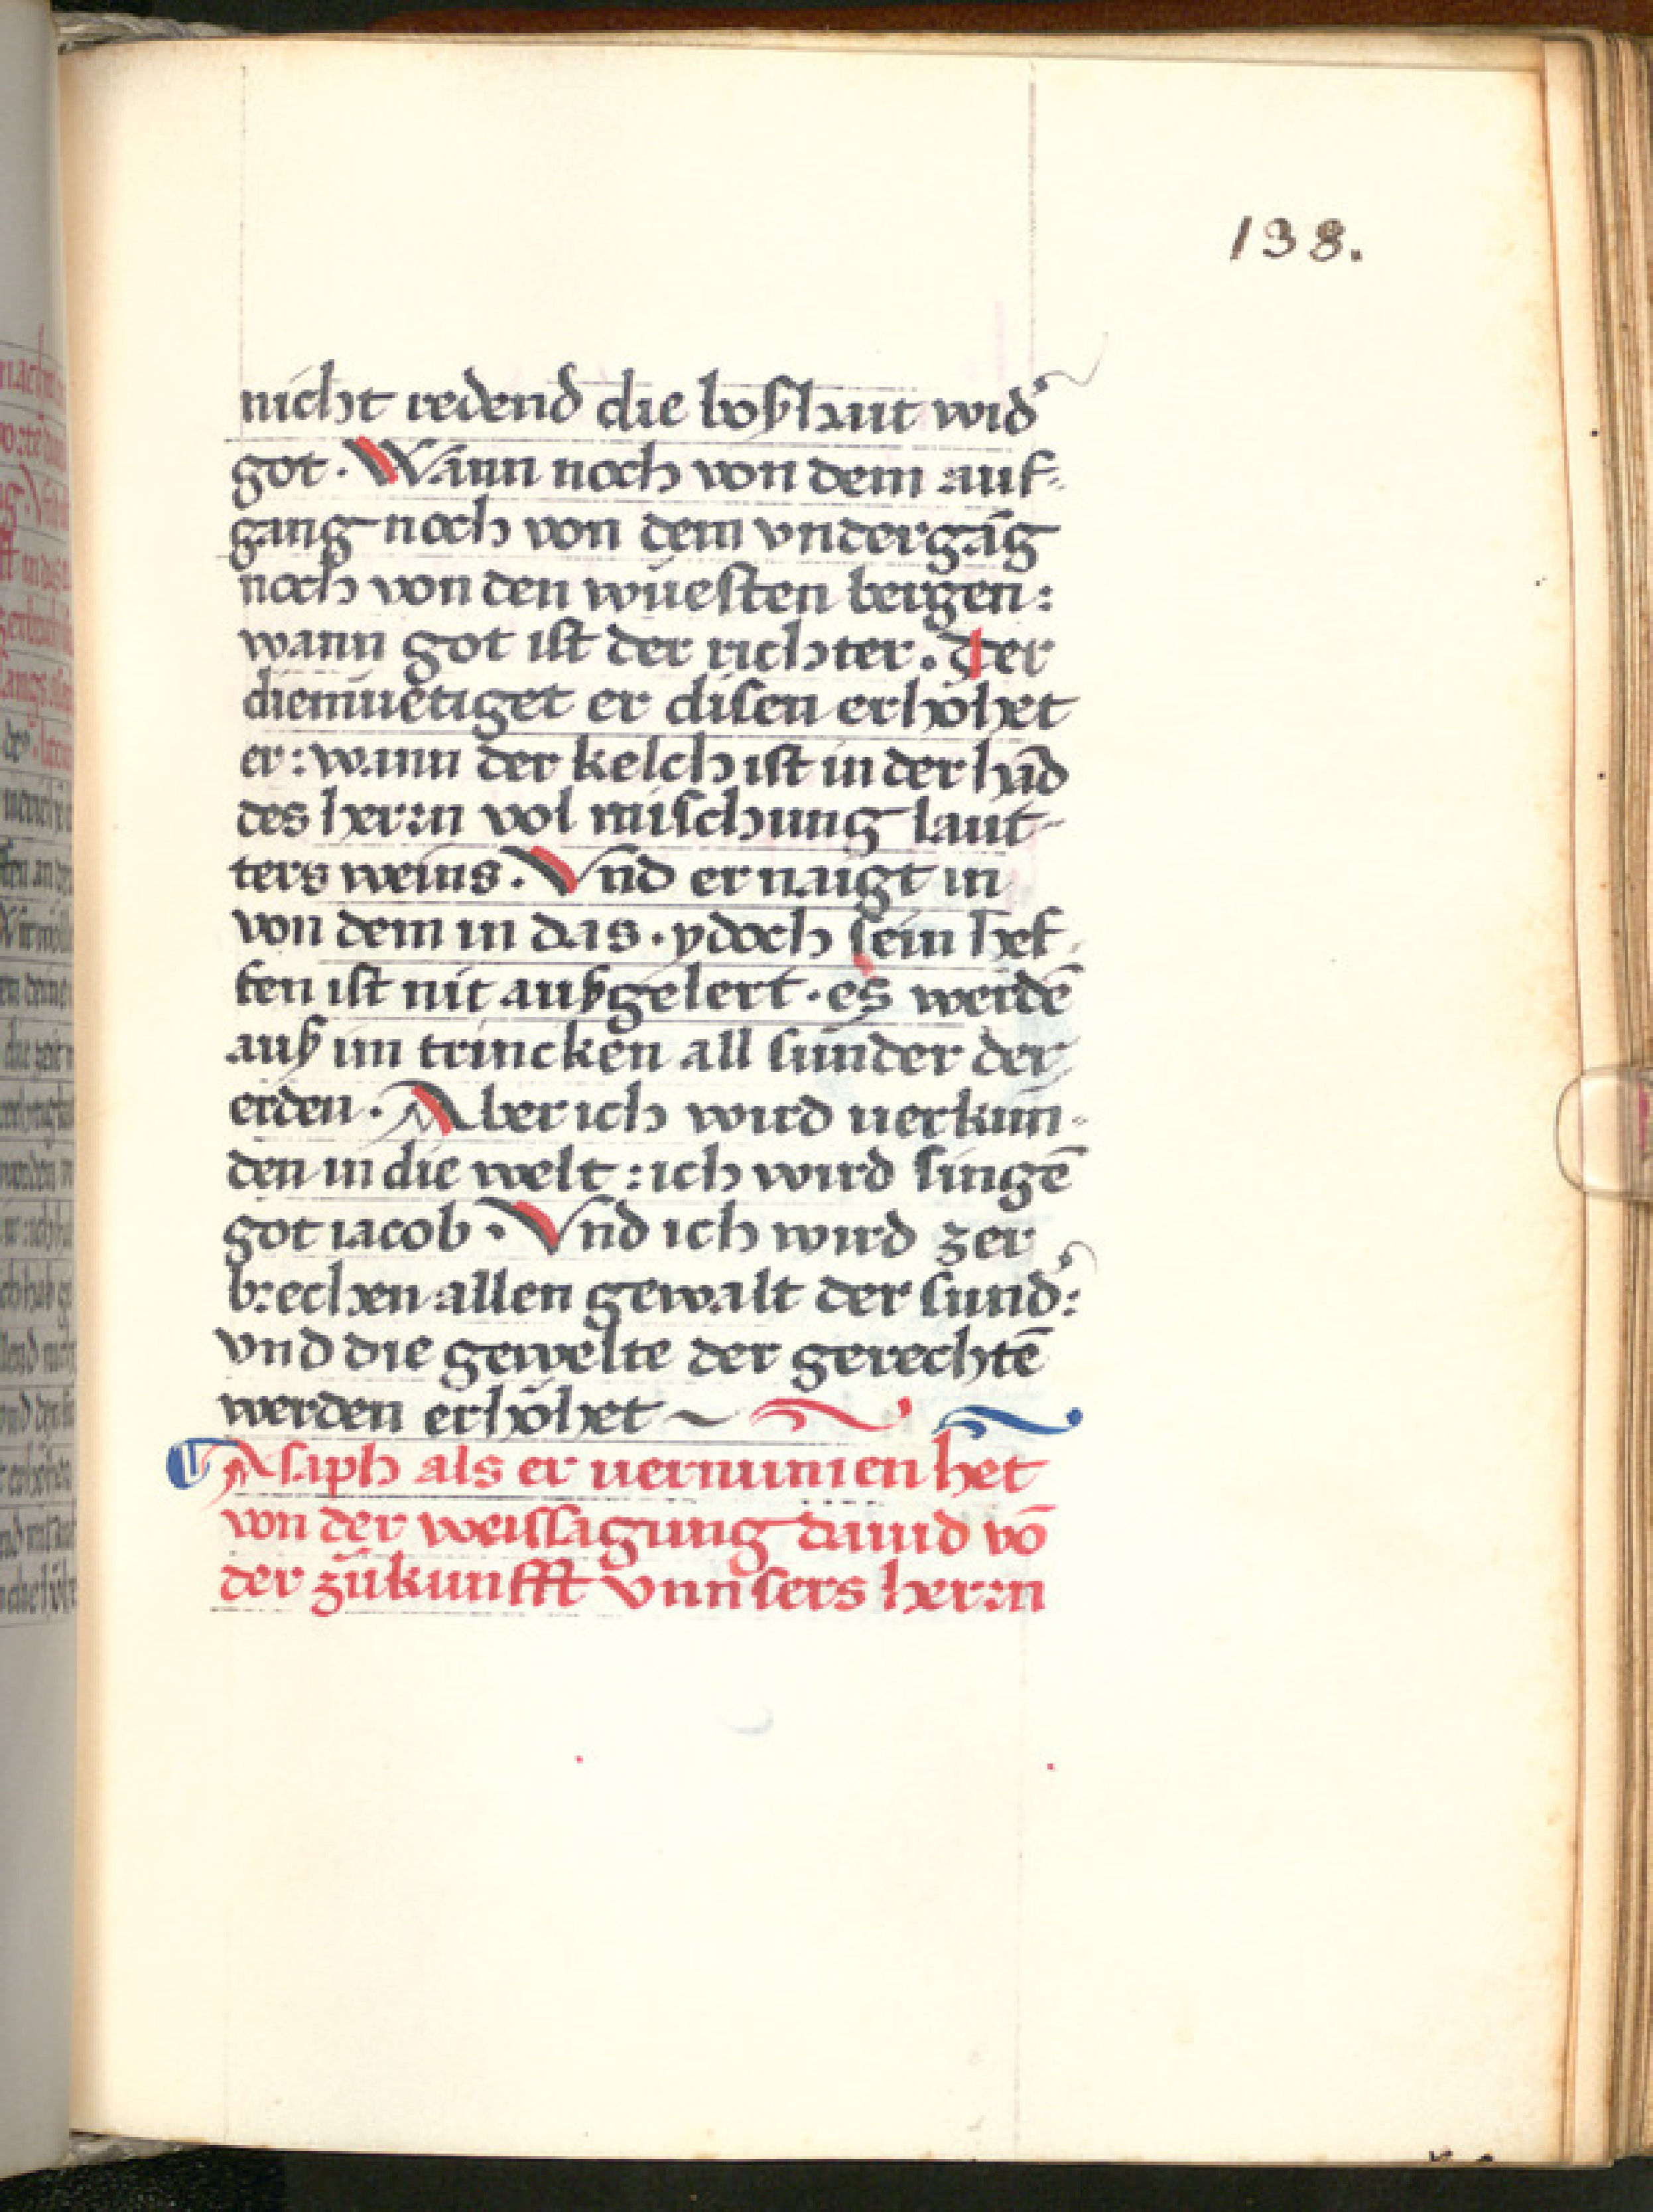 138.
nicht redend die boßhait wid᷑
got. Wann noch von dem auf-
gang noch von dem vndergāg
noch von den wüesten bergen:
wann got ist der richter. Der
diemüetiget er disen erhöhet
er: wann der kelch ist in der hād
des herrn vol mischung laut-
ters weins. Vnd er naigt in
von dem in das. ydoch sein hef
fen ist nit außgelert. es werdē
auß im trincken all sünder der
erden. Aber ich wird uerkün-
den in die welt: ich wird singē
got iacob. Vnd ich wird zer
brechen allen gewalt der sünd᷑:
vnd die gewelte der gerechtē
werden erhöhet
Asaph als er uernumen het
von der weissagung dauid vō
der zůkunfft vnnsers herrn